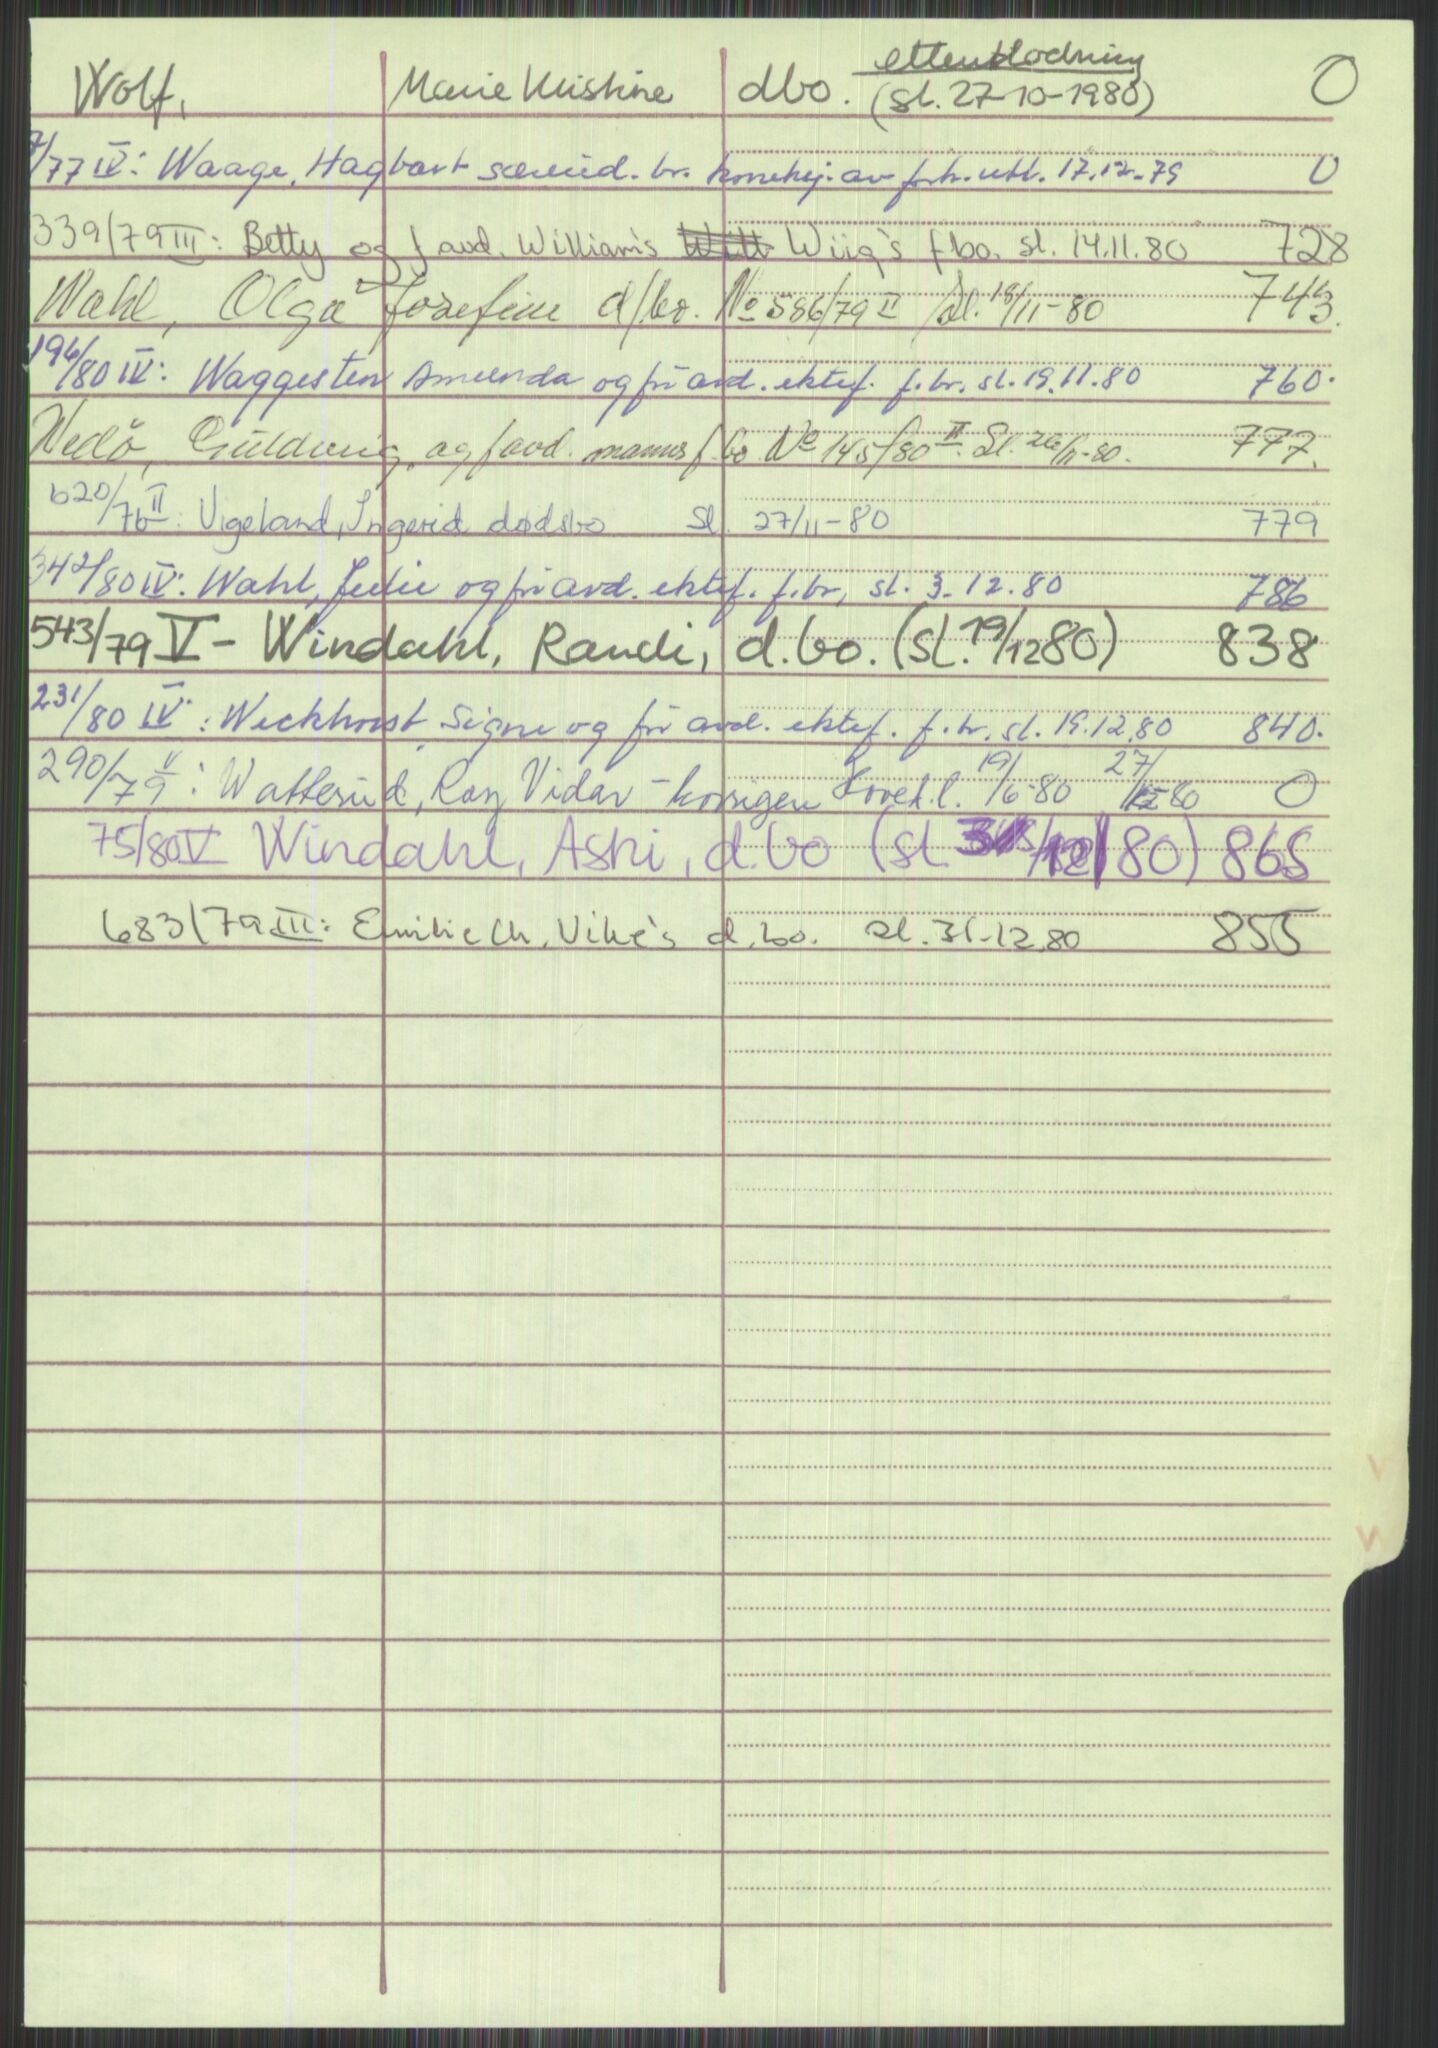 etterutlodning
Wolf, Marie Kristine dbo. (sl. 27-10-1980) 0
/77 IV: Waage, Hagbart særeid. br. av 17.12.79 0
339/79 III: Betty og f avd. William's Wiig's f bo. sl. 14.11.80 728
Wahl, Olga Josefine d/bo. No 586/79 II Sl. 18/11-80 743.
196/80 IV: Waggesten Amunda og før avd. ektef. f.br. sl. 19.11.80 760.
Wedø, og f avd. manns f.bo No 145/80 II. Sl. 26/11-80. 777.
620/76 II: Vigeland, Ingerid dødsbo sl. 27/11-80 779
342/80 IV: Wahl, Julie og før avd. ektef. f.br, sl. 3.12.80 786
543/79 V - Windahl, Randi, d.bo. (sl. 19/12 80) 838
231/80 IV: Weckhorst, Signe og før avd. ektef. f.br. sl. 19.12.80 840.
290/79 V: Watterud, Roy Vidar - 19/6-80 27/12-80 0
75/80 V Windahl, Aski, d.bo (sl. /80) 865
683/79 III: Emilie Ch. Vike's d.bo. sl. 31-12.80 855
V
W